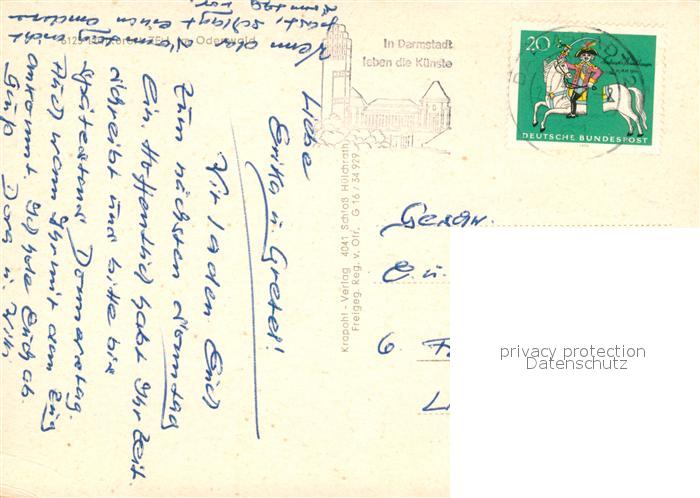 Liebe
Erika u. Gretel!
Wir laden Euch
zum nächsten Sonntag
ein. Hoffentlich habt Ihr Zeit
Schreibt uns bitte bis
spätestens Donnerstag.
Auch wann Ihr mit dem Zug
ankommt. Ich hole Euch ab.
Gruß Dora u. Willi
Wenn das
passt, schlagt einen anderen
vor
Odenwald
In Darmstadt
leben die Künste
20
DEUTSCHE BUNDESPOST
Krapohl-Verlag 4041 Schloß Hülchrath
Freigeg. Reg. v. Ofr. G 16 / 34 929
6
privacy protection
Datenschutz